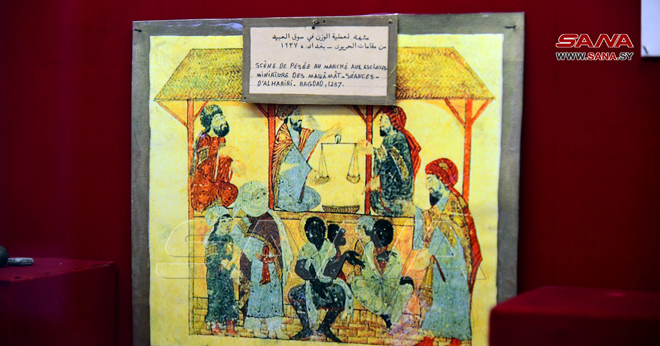 مشهد لعملية الوزن في سوق العبيد
من مقامات الحريري - بغداد، ١٢٣٧
SCÈNE DE PESÉE AU MARCHÉ AUX ESCLAVES
MINIATURE DES MAQÂMÂT-SÉANCES-
D'ALHARIRI. BAGDAD, 1237.
SANA
WWW.SANA.SY
SANA